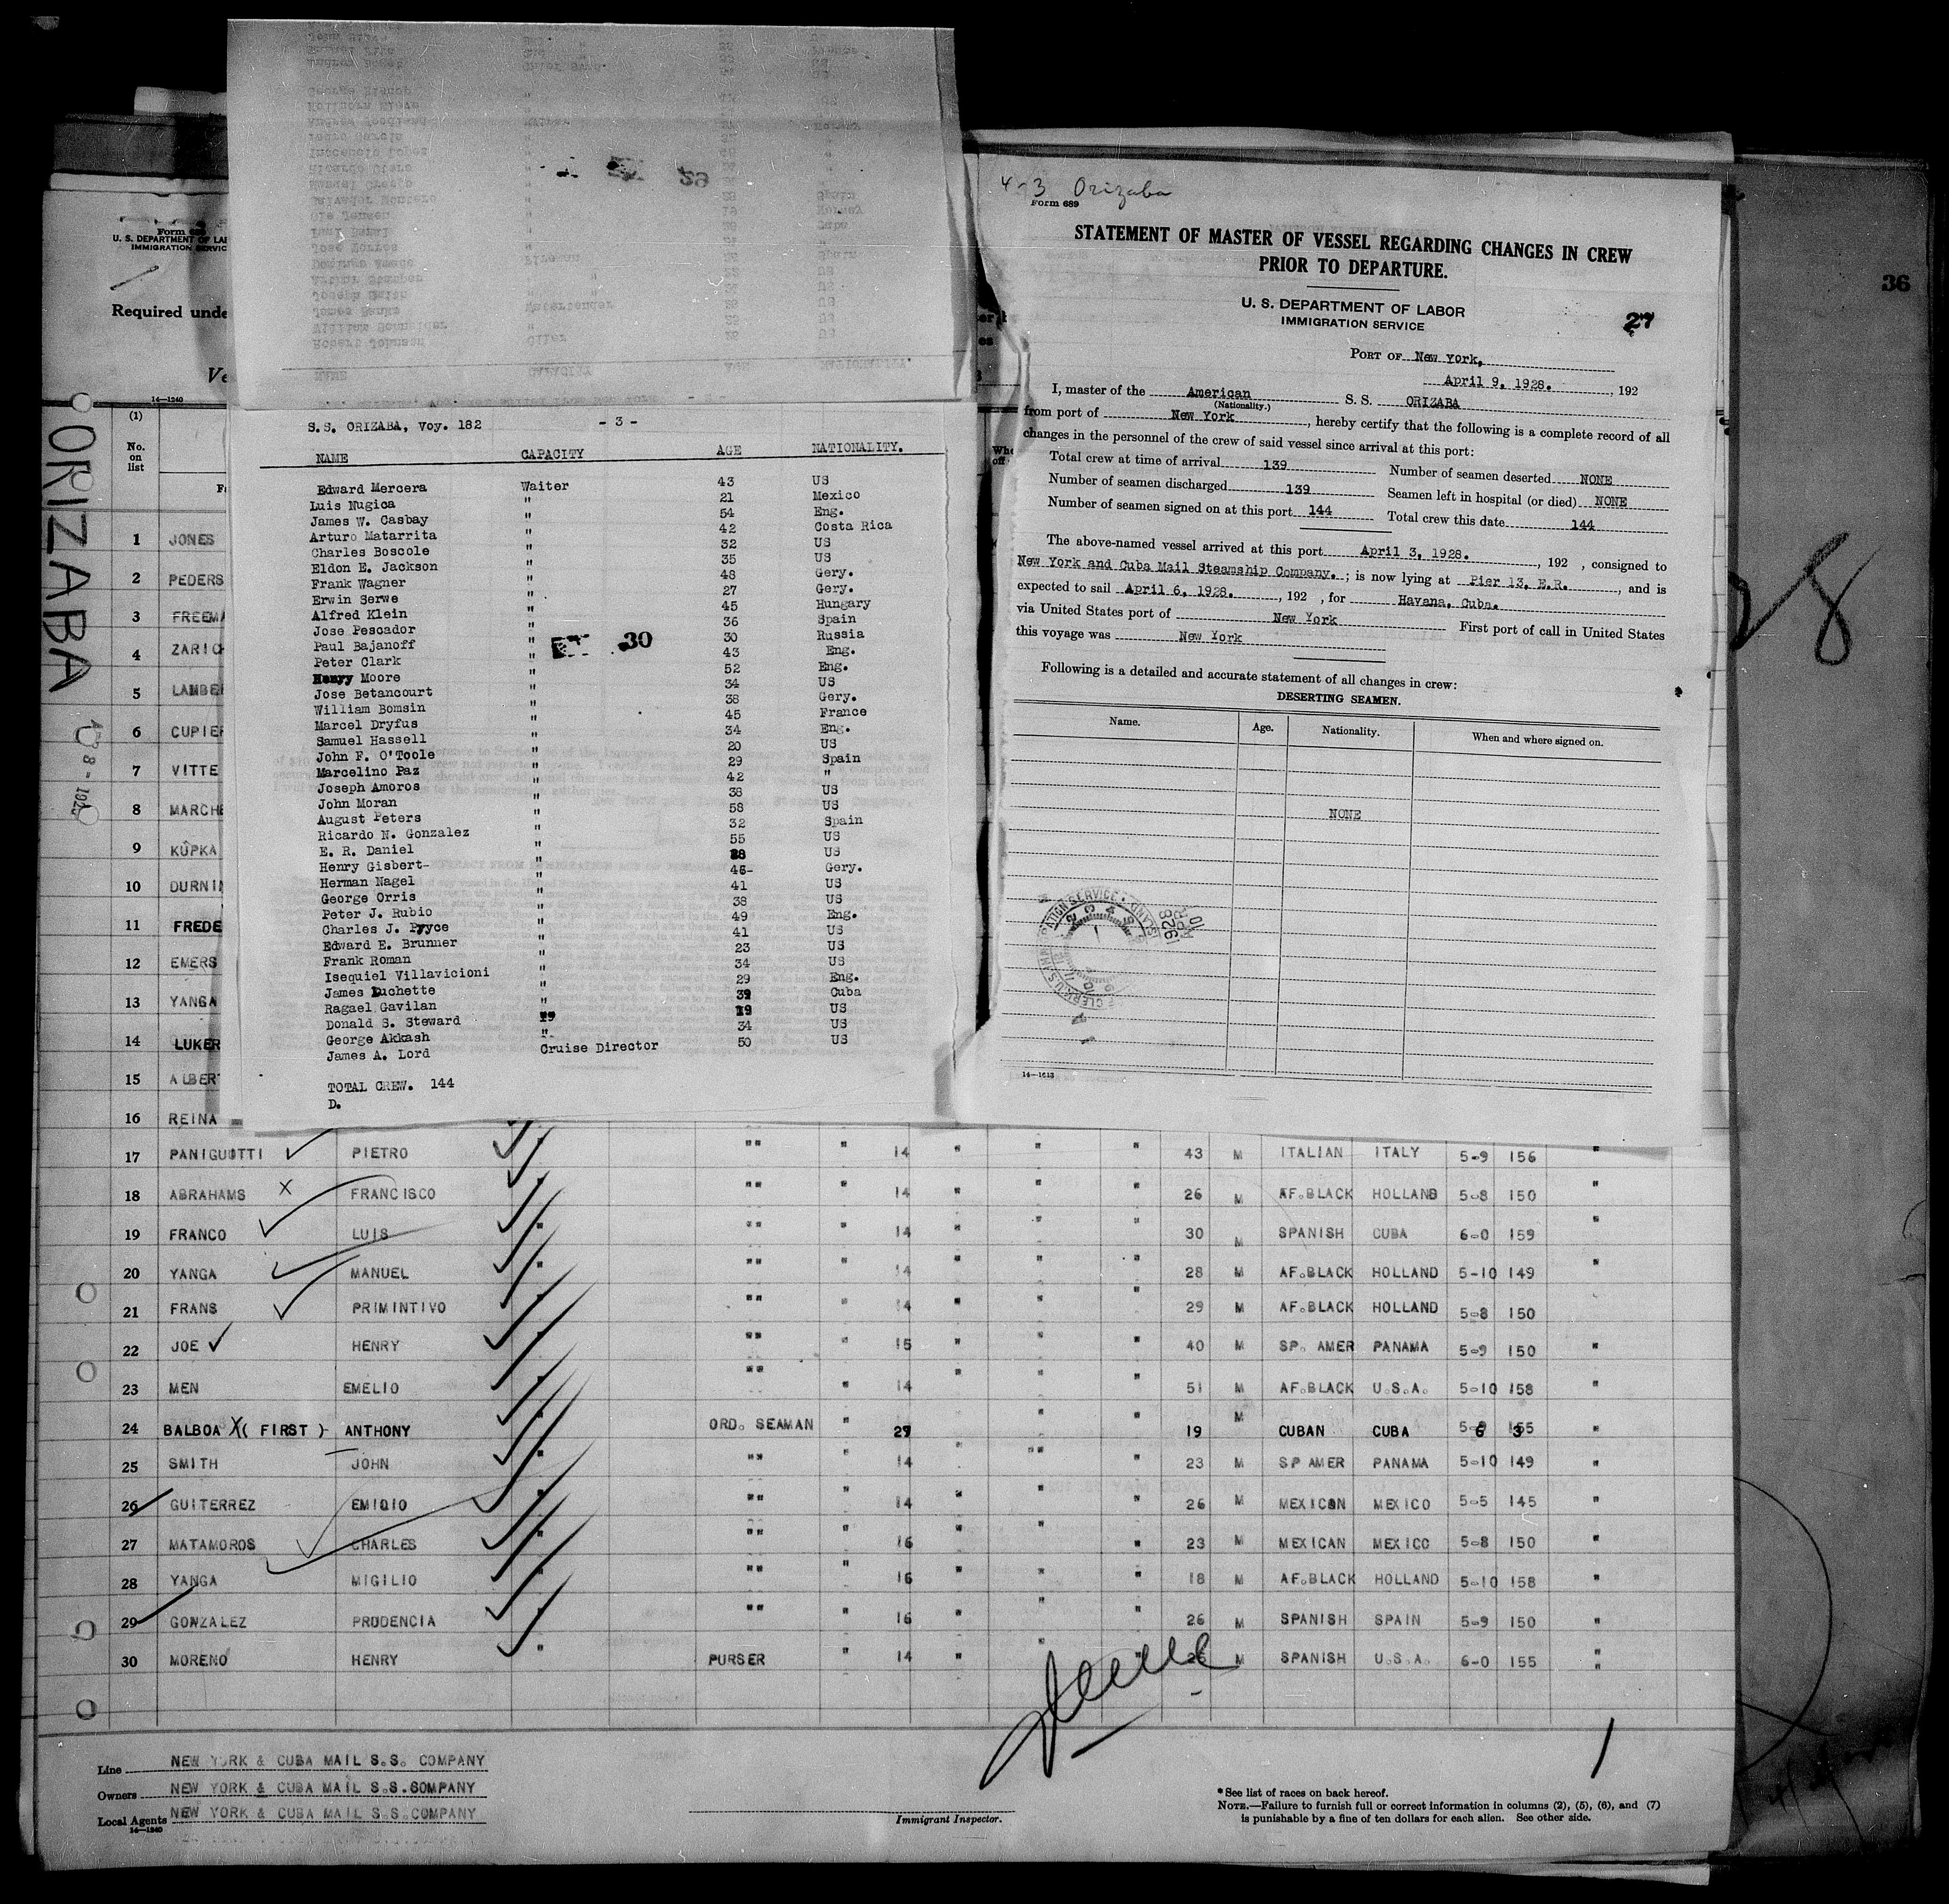 4-3 Orizaba
Form 689
STATEMENT OF MASTER OF VESSEL REGARDING CHANGES IN CREW
PRIOR TO DEPARTURE.
U. S. DEPARTMENT OF LABOR
IMMIGRATION SERVICE
27
PORT OF New York,
April 9, 1928. , 192
I, master of the American S. S. ORIZABA
(Nationality.)
from port of New York, hereby certify that the following is a complete record of all
changes in the personnel of the crew of said vessel since arrival at this port:
Total crew at time of arrival 139 Number of seamen deserted NONE
Number of seamen discharged 139 Seamen left in hospital (or died) NONE
Number of seamen signed on at this port 144 Total crew this date 144
The above-named vessel arrived at this port April 3, 1928. , 192 , consigned to
New York and Cuba Mail Steamship Company. ; is now lying at Pier 13, E.R. , and is
expected to sail April 6, 1928. , 192 , for Havana, Cuba.
via United States port of New York First port of call in United States
this voyage was New York
Following is a detailed and accurate statement of all changes in crew:
DESERTING SEAMEN.
Name. Age. Nationality. When and where signed on.
NONE
14-1613
36
28
S.S. ORIZABA, Voy. 182 - 3 -
NAME CAPACITY AGE NATIONALITY.
Edward Mercera Waiter 43 US
Luis Nugica " 21 Mexico
James W. Casbay " 54 Eng.
Arturo Matarrita " 42 Costa Rica
Charles Boscole " 32 US
Eldon E. Jackson " 35 US
Frank Wagner " 48 Gery.
Erwin Serwe " 27 Gery.
Alfred Klein " 45 Hungary
Jose Pescador " 36 Spain
Paul Bajanoff " 30 Russia
Peter Clark " 43 Eng.
Henry Moore " 52 Eng.
Jose Betancourt " 34 US
William Bomsin " 38 Gery.
Marcel Dryfus " 45 France
Samuel Hassell " 34 Eng.
John F. O'Toole " 20 US
Marcelino Paz " 29 Spain
Joseph Amoros " 42 "
John Moran " 38 US
August Peters " 58 US
Ricardo N. Gonzalez " 32 Spain
E. R. Daniel " 55 US
Henry Gisbert " 28 US
Herman Nagel " 46 Gery.
George Orris " 41 US
Peter J. Rubio " 38 US
Charles J. Pryce " 49 Eng.
Edward E. Brunner " 41 US
Frank Roman " 23 US
Isequiel Villavicioni " 34 US
James Duchette " 29 Eng.
Ragael Gavilan " 39 Cuba
Donald S. Steward " 19 US
George Akkash " 34 US
James A. Lord Cruise Director 50 US
30
TOTAL CREW. 144
D.
U. S. DEPARTMENT OF LA
IMMIGRATION SERVIC
Required unde
Ve
14-1240
(1)
No.
on
list
ORIZABA
1 JONES
2 PEDERS
3 FREEM
4 ZARIC
5 LAMBE
6 CUPIE
7 VITTE
8 MARCH
9 KUPKA
10 DURNI
11 FREDE
12 EMERS
13 YANGA
14 LUKER
15 ALBER
16 REINA
17 PANIGUOTTI PIETRO "" " 14 " " " 43 M ITALIAN ITALY 5-9 156 "
18 ABRAHAMS X FRANCISCO "" " 14 " " " 26 M AF.BLACK HOLLAND 5-8 150 "
19 FRANCO LUIS "" " 14 " " " 30 M SPANISH CUBA 6-0 159 "
20 YANGA MANUEL "" " 14 " " " 28 M AF.BLACK HOLLAND 5-10 149 "
21 FRANS PRIMINTIVO "" " 14 " " " 29 M AF.BLACK HOLLAND 5-8 150
22 JOE HENRY "" " 15 " " " 40 M SP. AMER PANAMA 5-9 150 "
23 MEN EMELIO "" " 14 " " " 51 M AF.BLACK U.S.A. 5-10 158 "
24 BALBOA X( FIRST ) ANTHONY ORD. SEAMAN " 29 " 19 M CUBAN CUBA
25 SMITH JOHN "" " 14 " "" " 23 M SP AMER PANAMA 5-10 149 "
26 GUITERREZ EMIDIO "" " 14 " " " 26 M MEXICAN MEXICO 5-5 145 "
27 MATAMOROS CHARLES "" " 16 " " " 23 M MEXICAN MEXICO 5-8 150 "
28 YANGA MIGILIO "" " 16 " " " 18 M AF.BLACK HOLLAND 5-10 158 "
29 GONZALEZ PRUDENCIA "" " 16 " " " 26 M SPANISH SPAIN 5-9 150 "
30 MORENO HENRY PURSER " 14 " " M SPANISH U.S.A. 6-0 155 "
Line NEW YORK & CUBA MAIL S.S. COMPANY
Owners NEW YORK & CUBA MAIL S.S.COMPANY
Local Agents NEW YORK & CUBA MAIL S.S.COMPANY
14-1240
Immigrant Inspector.
* See list of races on back hereof.
NOTE.—Failure to furnish full or correct information in columns (2), (5), (6), and (7)
is punishable by a fine of ten dollars for each alien. See other side.